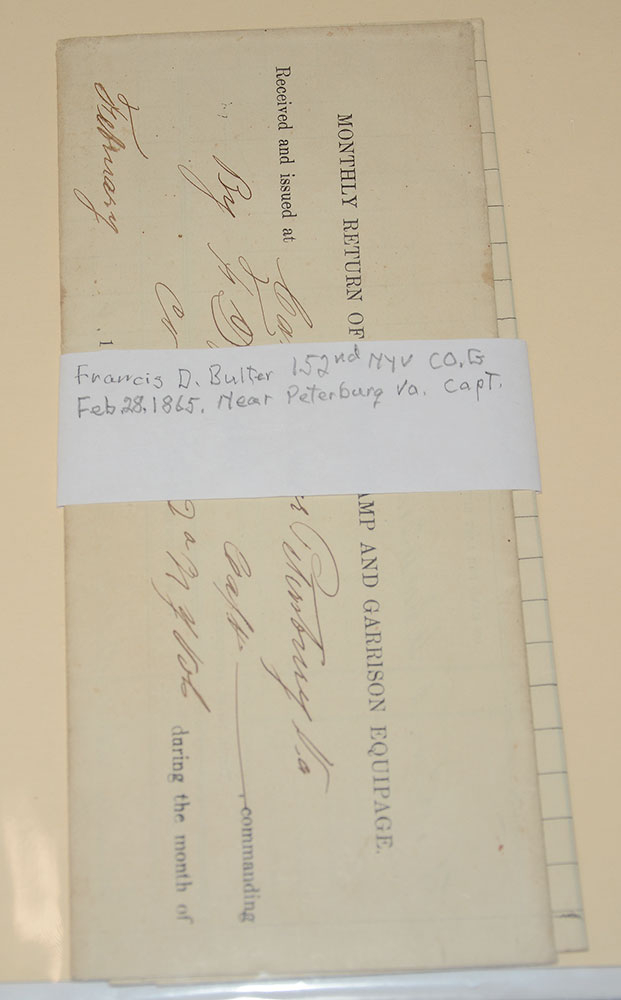 MONTHLY RETURN OF AMP AND GARRISON EQUIPAGE.
Received and issued at Ca r Petersburg Va
By F. D. Capt. , commanding
Co 2d N Y Vol during the month of
February 1
Francis D. Bulter 152nd NYV CO. E
Feb 28. 1865. Near Peterburg Va. Capt.